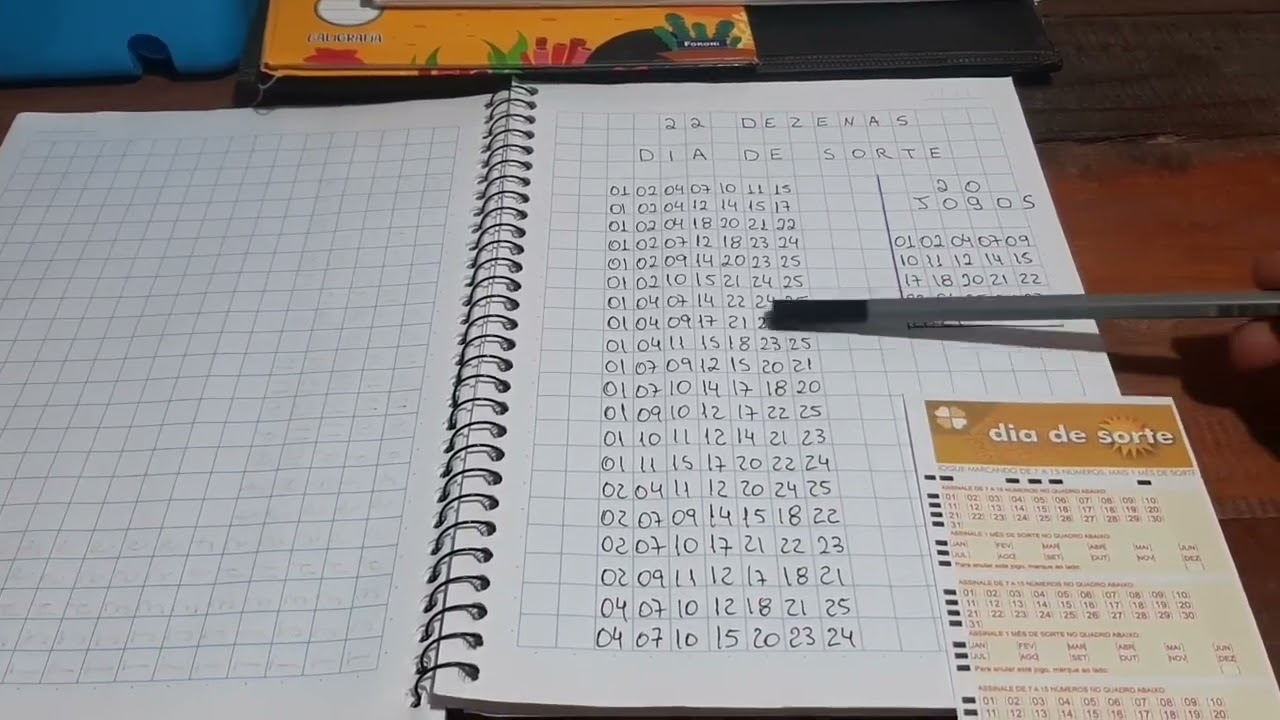 CALIGRAFIA
FORONI
22 DEZENAS
DIA DE SORTE
01 02 04 07 10 11 15
01 02 04 12 14 15 17
01 02 04 18 20 21 22
01 02 07 12 18 23 24
01 02 09 14 20 23 25
01 02 10 15 21 24 25
01 04 07 14 22 24 25
01 04 09 17 21
01 04 11 15 18 23 25
01 07 09 12 15 20 21
01 07 10 14 17 18 20
01 09 10 12 17 22 25
01 10 11 12 14 21 23
01 11 15 17 20 22 24
02 04 11 12 20 24 25
02 07 09 14 15 18 22
02 07 10 17 21 22 23
02 09 11 12 17 18 21
04 07 10 12 18 21 25
04 07 10 15 20 23 24
20
JOGOS
01 02 04 07 09
10 11 12 14 15
17 18 20 21 22
dia de sorte
JOGUE MARCANDO DE 7 A 15 NÚMEROS, MAIS 1 MÊS DE SORTE
ASSINALE DE 7 A 15 NÚMEROS NO QUADRO ABAIXO:
01 02 03 04 05 06 07 08 09 10
11 12 13 14 15 16 17 18 19 20
21 22 23 24 25 26 27 28 29 30
31
ASSINALE 1 MÊS DE SORTE NO QUADRO ABAIXO:
JAN FEV MAR ABR MAI JUN
JUL AGO SET OUT NOV DEZ
Para anular este jogo, marque ao lado:
ASSINALE DE 7 A 15 NÚMEROS NO QUADRO ABAIXO:
01 02 03 04 05 06 07 08 09 10
11 12 13 14 15 16 17 18 19 20
21 22 23 24 25 26 27 28 29 30
31
ASSINALE 1 MÊS DE SORTE NO QUADRO ABAIXO:
JAN FEV MAR ABR MAI JUN
JUL AGO SET OUT NOV DEZ
Para anular este jogo, marque ao lado:
ASSINALE DE 7 A 15 NÚMEROS NO QUADRO ABAIXO:
01 02 03 04 05 06 07 08 09 10
11 12 13 14 15 16 17 18 19 20